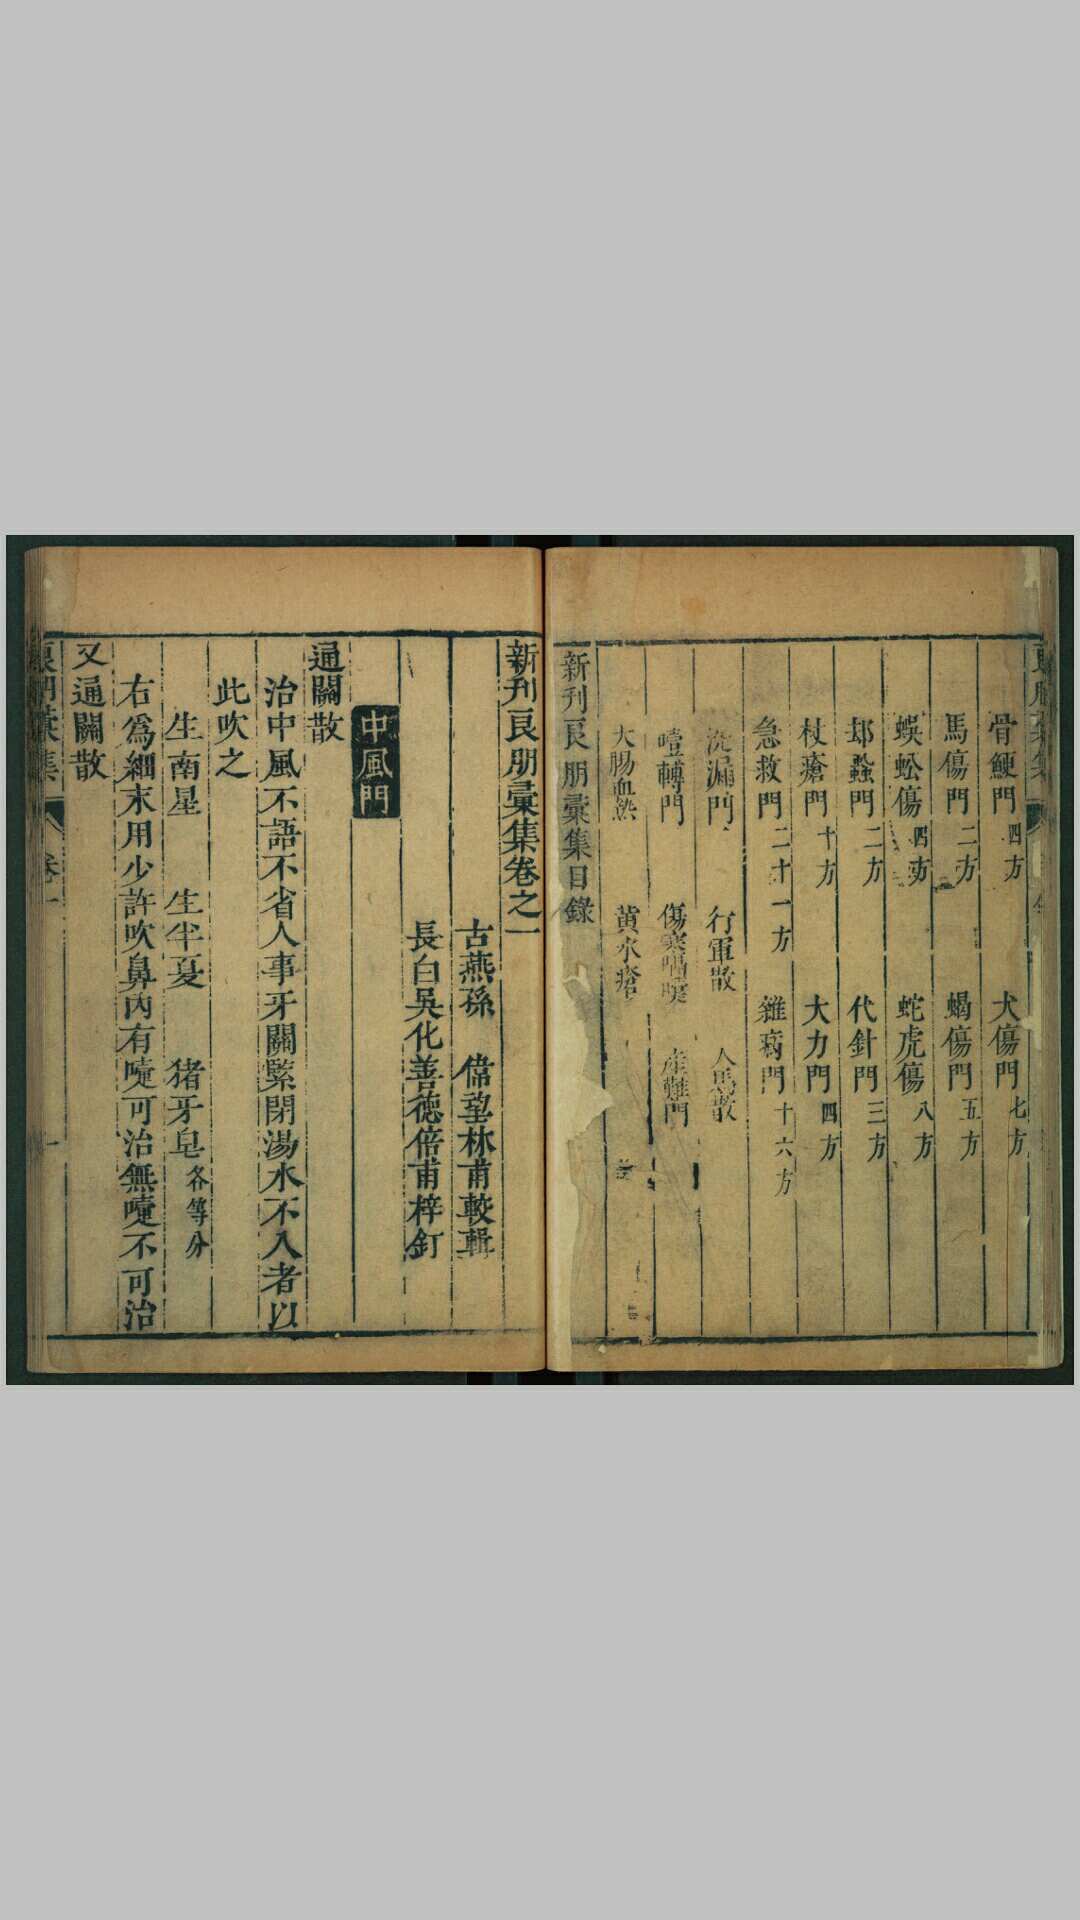 骨鯁門四方 犬傷門七方
馬傷門二方 蝎傷門五方
蜈蚣傷四方 蛇虎傷八方
邯蠚門二方 代針門三方
杖瘡門十方 大力門四方
急救門二十一方 雜病門十六方
漏門 行軍散
門 傷寒 產難門
大腸血熱 黄水瘡
新刊良朋彙集目錄
新刊良朋彙集卷之一
古燕孫 偉望林甫較輯
長白吳化善德倍甫梓釘
中風門
通關散
治中風不語不省人事牙關緊閉湯水不入者以
此吹之
生南星 生半夏 猪牙皂各等分
右為細末用少許吹鼻內有嚏可治無嚏不可治
又通關散
良朋彙集 卷一 一